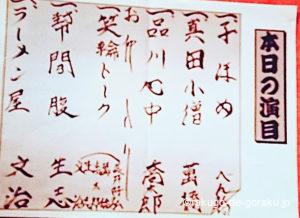 本日の演目
一、子ほめ　べん橋
一、真田小僧　萬橘
一、品川心中　喬太郎
お仲入り
一、笑輪トーク
一、幇間腹　生志
一、ラーメン屋　文治
rakugo-de-goraku.jp